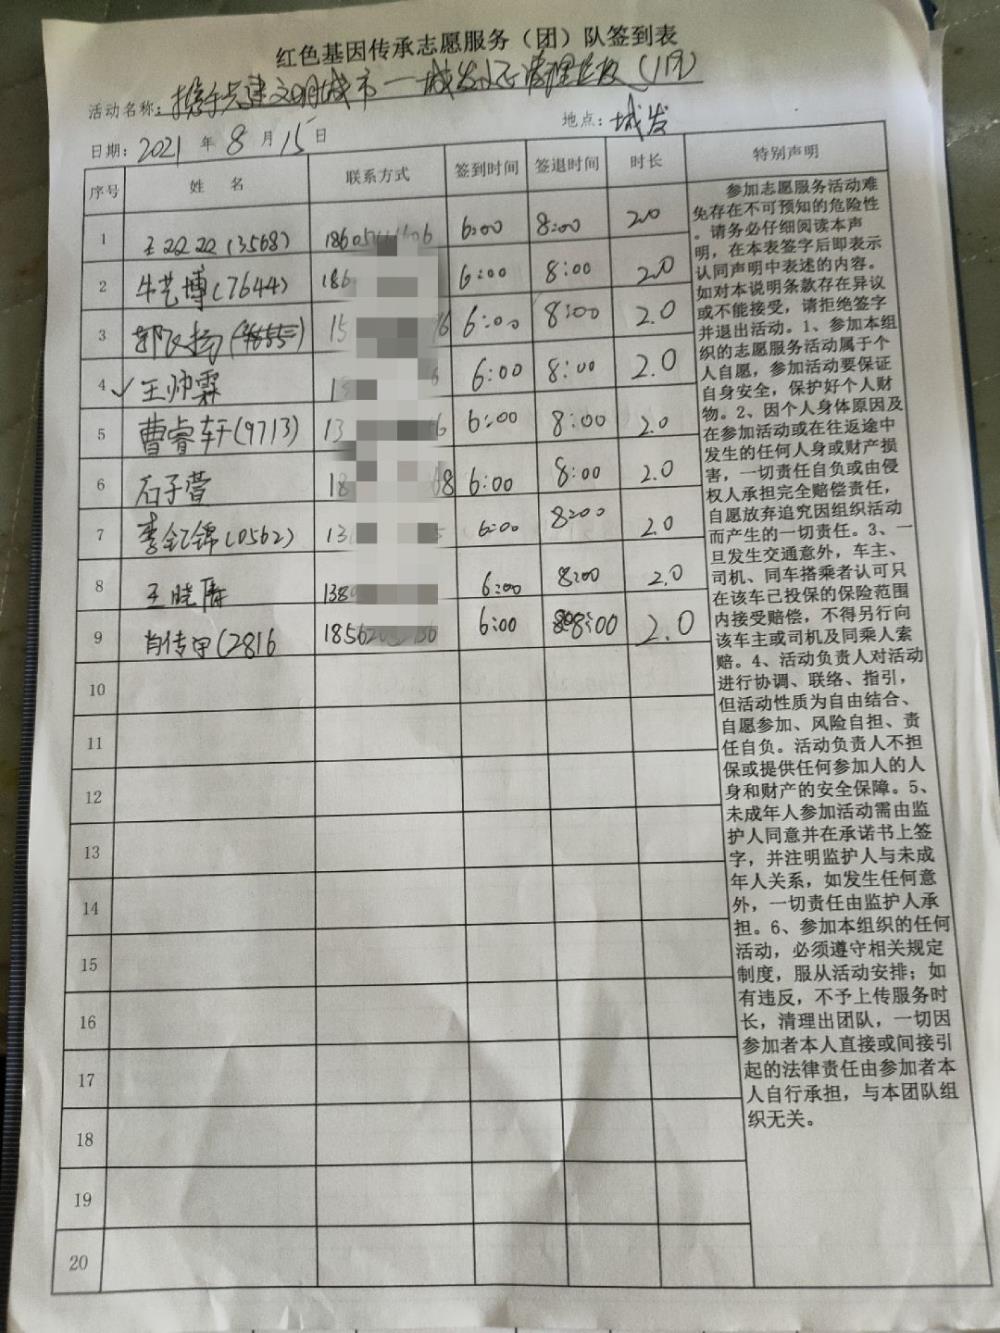 红色基因传承志愿服务（团）队签到表
活动名称：携手共建文明城市——城发小区清理垃圾（1限）
日期：2021年8月15日 地点：城发
序号 姓 名 联系方式 签到时间 签退时间 时长 特别声明
1 王 (3568) 6:00 8:00 2.0
2 牛艺博(7644) 186 6:00 8:00 2.0
3 15 6:00 8:00 2.0
4 ✓王帅霖 6:00 8:00 2.0
5 曹睿轩(9713) 13 6:00 8:00 2.0
6 石子萱 18 6:00 8:00 2.0
7 李 锦(0562) 13 6:00 8:00 2.0
8 王晓 138 6:00 8:00 2.0
9 肖传甲(2816 1856 6:00 8:00 2.0
10
11
12
13
14
15
16
17
18
19
20
参加志愿服务活动难
免存在不可预知的危险性
。请务必仔细阅读本声
明，在本表签字后即表示
认同声明中表述的内容。
如对本说明条款存在异议
或不能接受，请拒绝签字
并退出活动。1、参加本组
织的志愿服务活动属于个
人自愿，参加活动要保证
自身安全，保护好个人财
物。2、因个人身体原因及
在参加活动或在往返途中
发生的任何人身或财产损
害，一切责任自负或由侵
权人承担完全赔偿责任，
自愿放弃追究因组织活动
而产生的一切责任。3、一
旦发生交通意外，车主、
司机、同车搭乘者认可只
在该车已投保的保险范围
内接受赔偿，不得另行向
该车主或司机及同乘人索
赔。4、活动负责人对活动
进行协调、联络、指引，
但活动性质为自由结合、
自愿参加、风险自担、责
任自负。活动负责人不担
保或提供任何参加人的人
身和财产的安全保障。5、
未成年人参加活动需由监
护人同意并在承诺书上签
字，并注明监护人与未成
年人关系，如发生任何意
外，一切责任由监护人承
担。6、参加本组织的任何
活动，必须遵守相关规定
制度，服从活动安排；如
有违反，不予上传服务时
长，清理出团队，一切因
参加者本人直接或间接引
起的法律责任由参加者本
人自行承担，与本团队组
织无关。